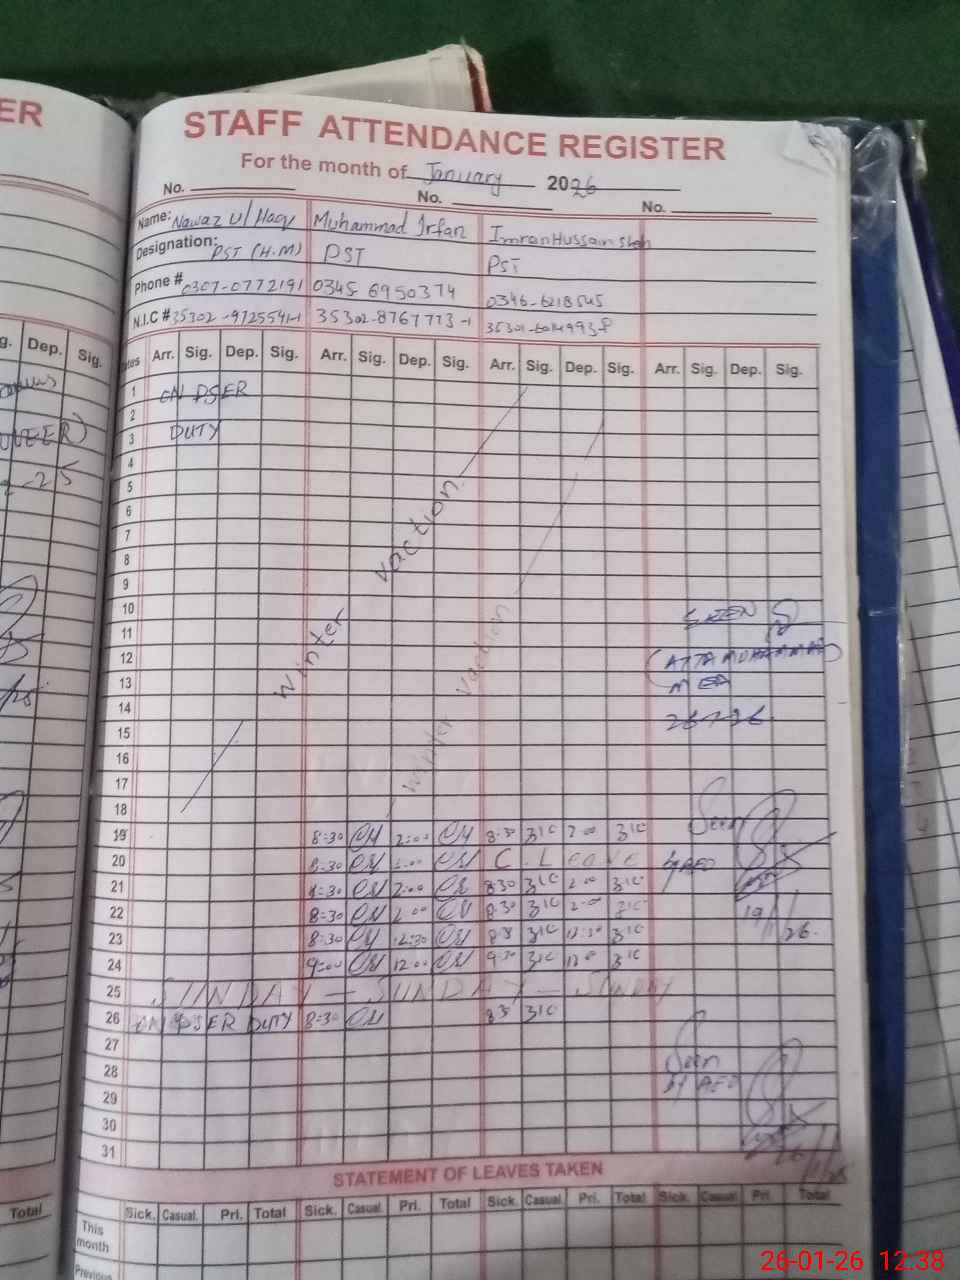 ER
STAFF ATTENDANCE REGISTER
For the month of January 2026
No. No. No.
Name: Nawaz Ul Haq Muhammad Irfan Imran Hussain Shah
Designation: PST (H.M) PST PST
Phone # 0307-0772191 0345 6950374 0346-6218545
N.I.C # 35302-9725541-1 35302-8767773-1
g. Dep. Sig.
Dates Arr. Sig. Dep. Sig. Arr. Sig. Dep. Sig. Arr. Sig. Dep. Sig. Arr. Sig. Dep. Sig.
1 ON PSER
2
3 DUTY
4
5
6
7
8
9
10
11
12
13
14
15
16
17
18
winter vaction
winter vaction
SEEN
(ATTA MUHAMMAD)
MEA
26-1-26
19 8=30 2=00 8=30 2=00
20 8=30 2=00 C. Leave
21 8=30 2=00 8:30 2=00
22 8=30 2:00 8:30 2=00
23 8=30 12:30 8:30 12:30
24 9=00 12:00 9:00 12:00
Seen
by AEO
19/1/26.
25 SUNDAY - SUNDAY - SUNDAY
26 ON PSER DUTY 8=30
27
28
29
30
31
Seen
by AEO
26/1/26
STATEMENT OF LEAVES TAKEN
Total
Sick. Casual. Pri. Total Sick. Casual. Pri. Total Sick. Casual. Pri. Total Sick. Casual Pri. Total
This month
Previous
26-01-26 12:38